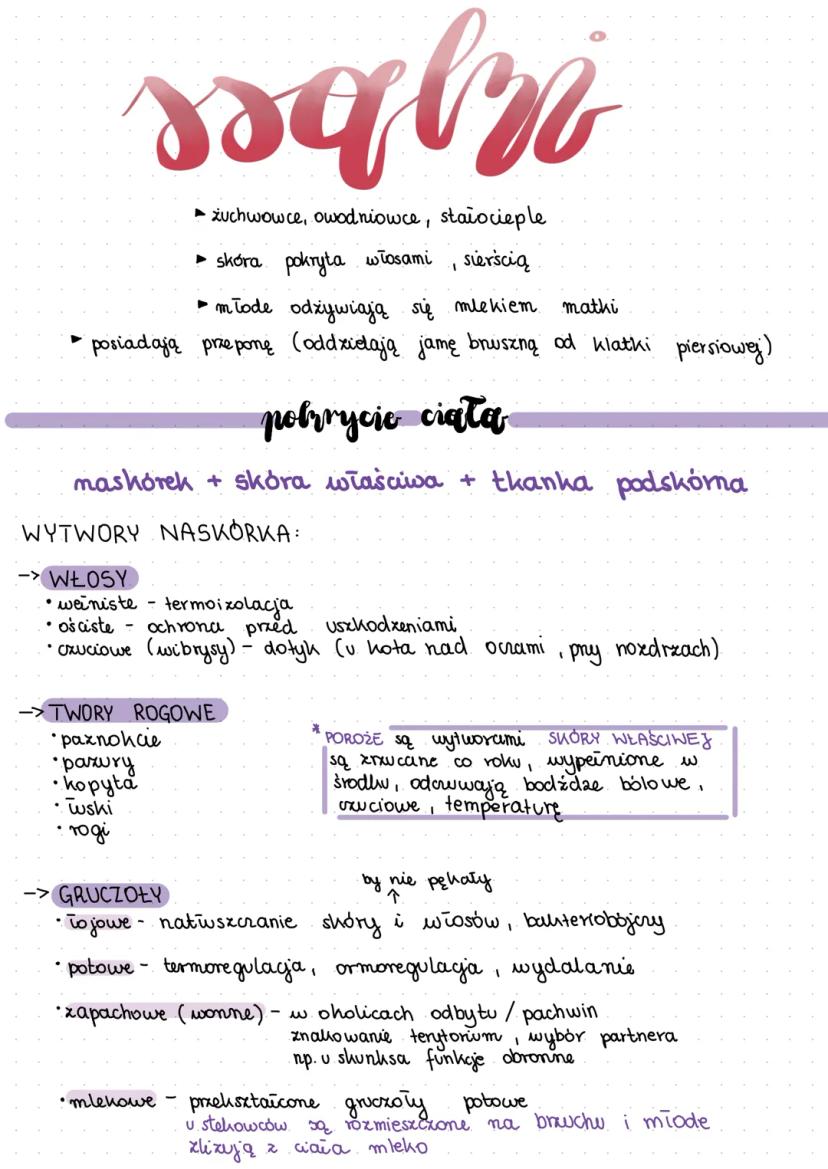 ssaki
► żuchwowce, owodniowce, stałocieple
► skóra pokryta włosami, sierścią
► młode odżywiają się mlekiem matki
► posiadają przeponę (oddzielają jamę brzuszną od klatki piersiowej)
pokrycie ciała
naskórek + skóra właściwa + tkanka podskórna
WYTWORY NASKÓRKA:
-> WŁOSY
• wełniste - termoizolacja
• ościste - ochrona przed uszkodzeniami
• czuciowe (wibrysy) - dotyk (u kota nad oczami, przy nozdrzach)
-> TWORY ROGOWE
• paznokcie
• pazury
• kopyta
• łuski
• rogi
* POROŻE są wytworami SKÓRY WŁAŚCIWEJ
są zrzucane co roku, wypełnione w
środku, odczuwają bodźdze bólowe,
czuciowe, temperaturę
-> GRUCZOŁY
by nie pękały
↑
• łojowe - natłuszczanie skóry i włosów, bakteriobójczy
• potowe - termoregulacja, ormoregulacja, wydalanie
• zapachowe (wonne) - w okolicach odbytu / pachwin
znakowanie terytorium, wybór partnera
np. u skunksa funkcje obronne
• mlekowe - przekształcone gruczoły potowe
u stekowców są rozmieszczone na brzuchu i młode
zlizują z ciała mleko